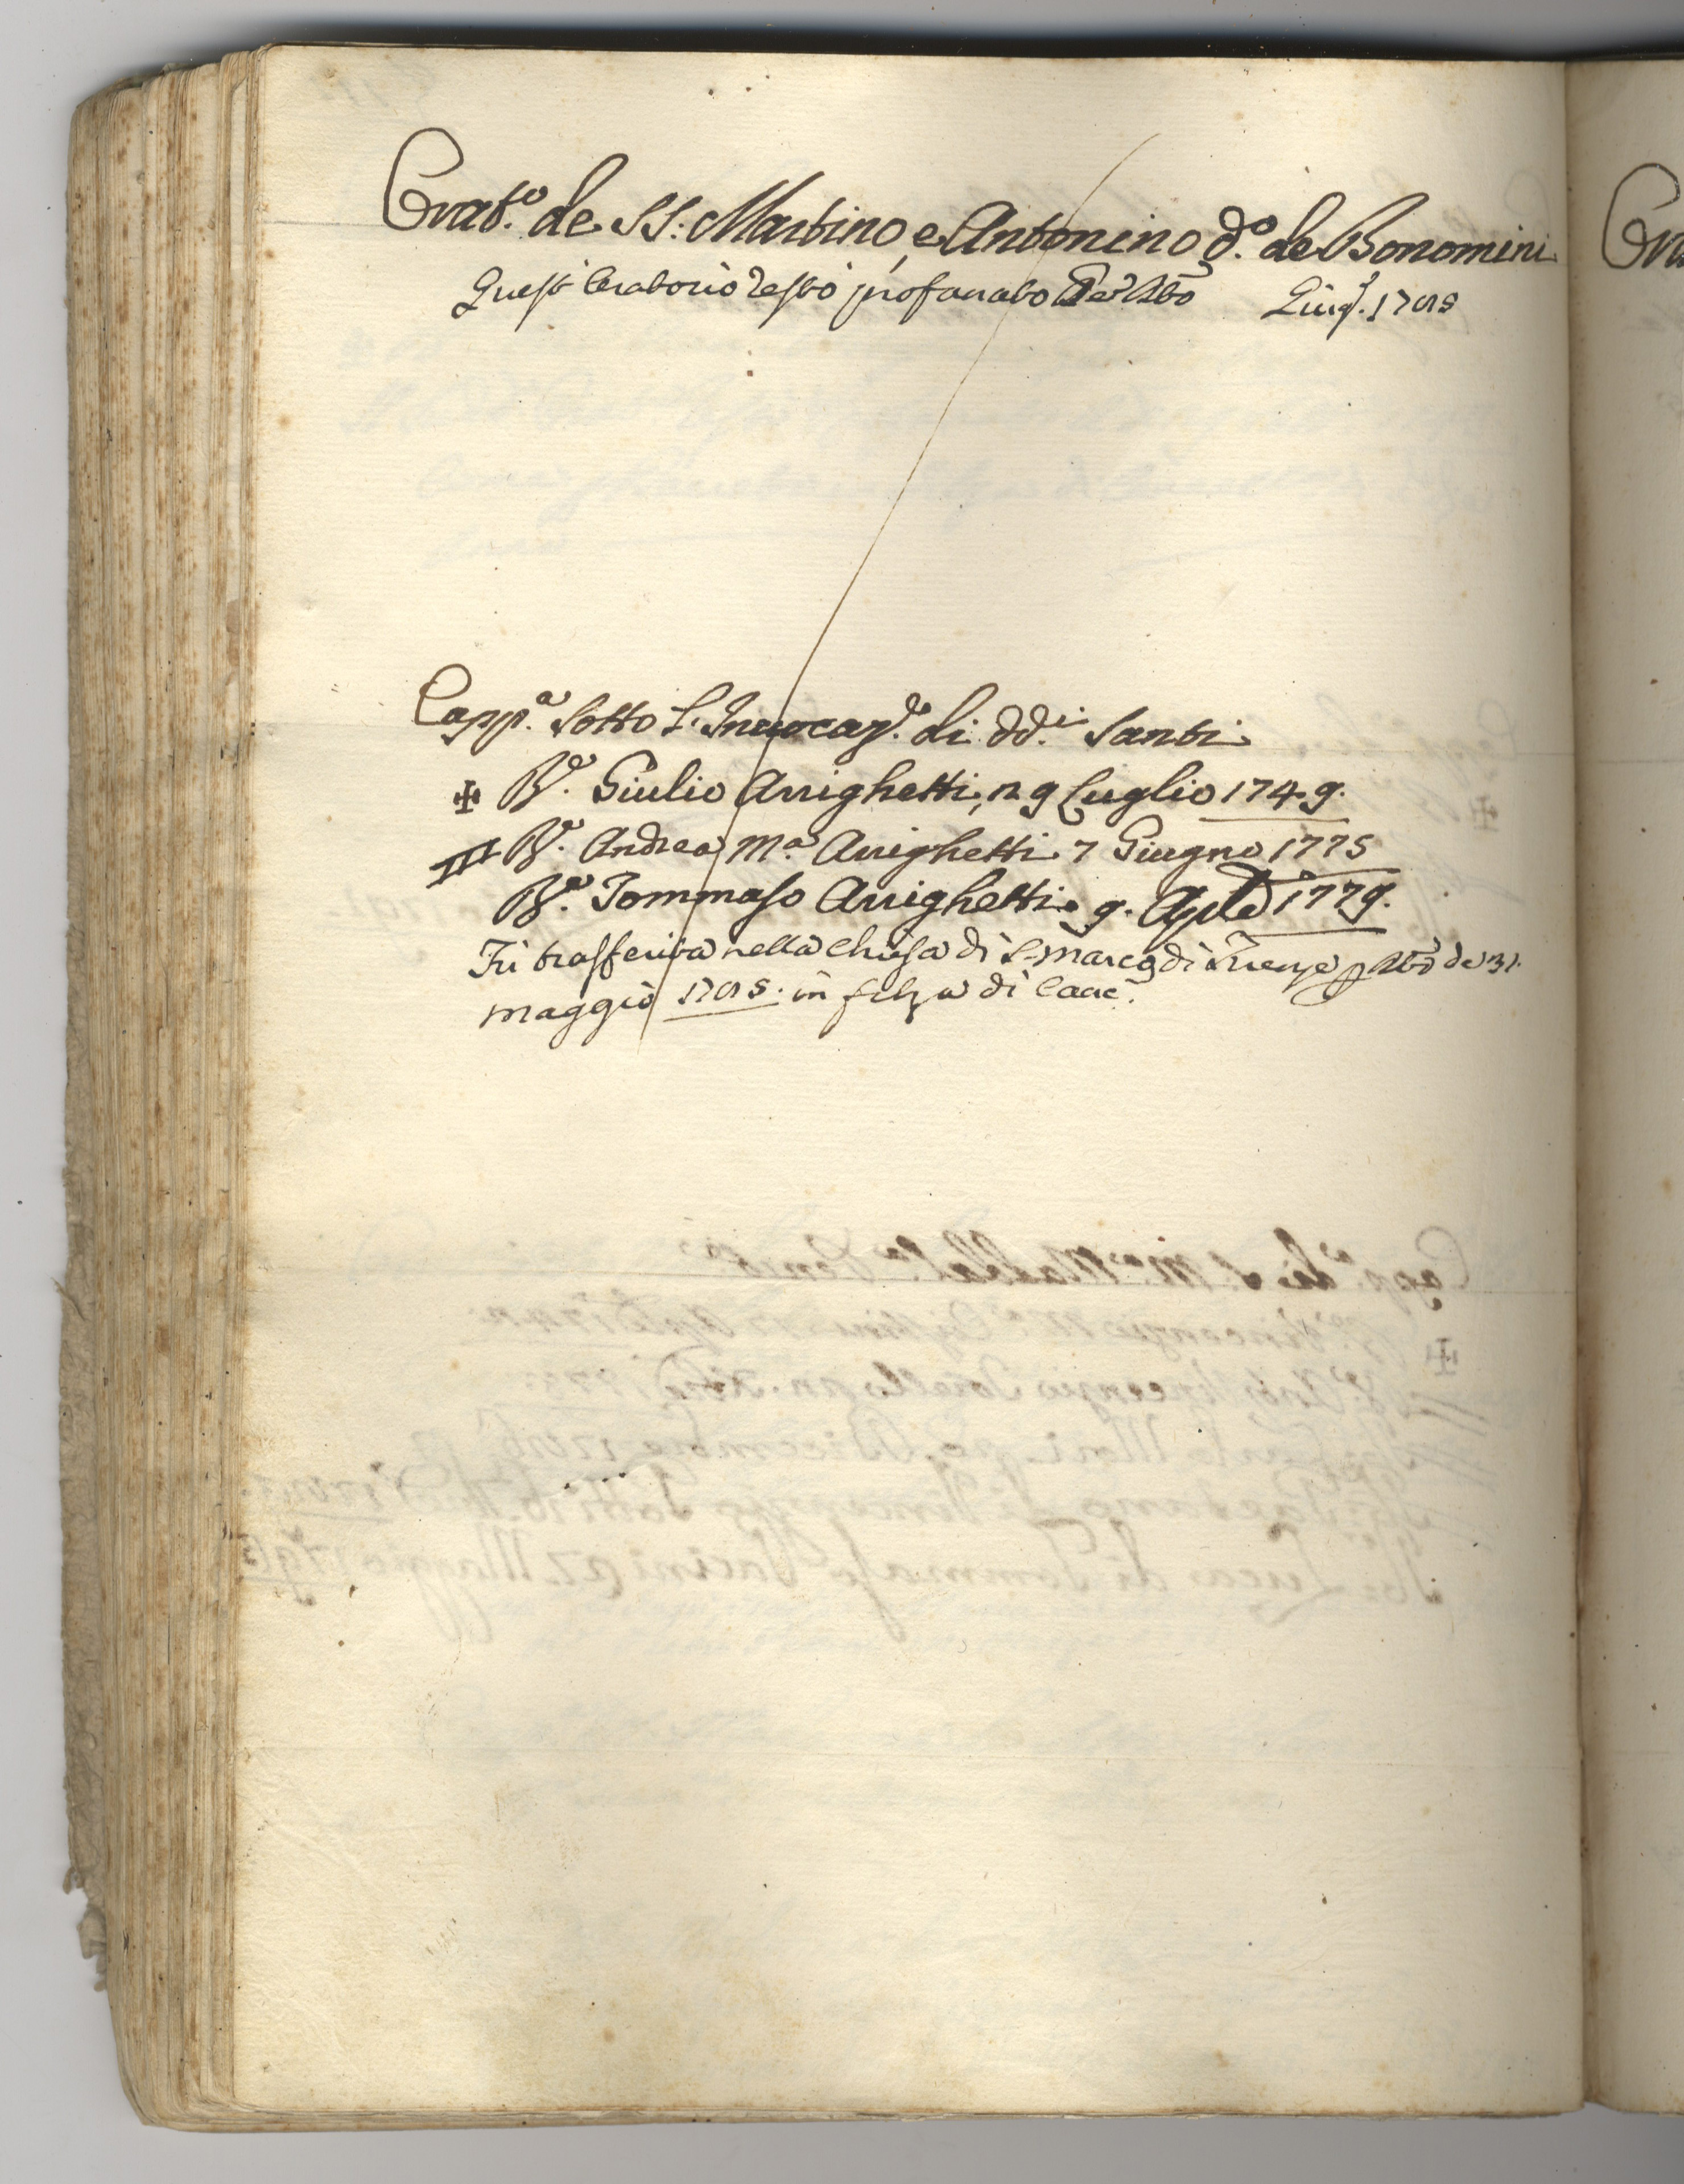 Orat.º de SS: Martino, e Antonino d.º de Bonomini
Questo Oratorio restò profanato Per Atto Giug.º 1785
Capp.ª sotto l'Invocaz.e di dd.i Santi
✠ R.e Giulio Arrighetti, 29 Luglio 1749.
R.e Andrea M.ª Arrighetti 7 Giugno 1775
R.e Tommaso Arrighetti 9. Aple 1779.
Fù trasferita nella Chiesa di S. Marco di Firenze p Atto de 31.
Maggio 1785. in filza di Canc.